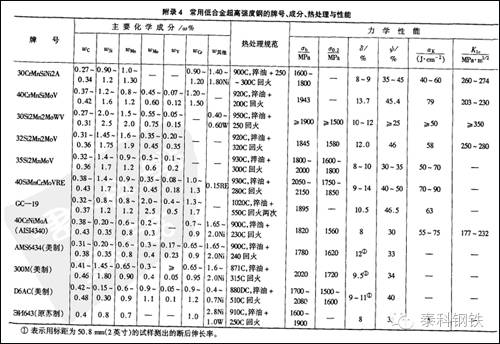 附录 4 常用低合金超高强度钢的牌号、成分、热处理与性能
牌 号 主 要 化 学 成 分 /ω% 热处理规范 力 学 性 能
wC wSi wMn wMo wV wCr w其他 σb/MPa σ0.2/MPa δ/% ψ/% αK/(J·cm-2) K1c/MPa·m1/2
30CrMnSiNi2A 0.27~0.34 0.90~1.2 1.0~1.30 0.90~1.20 1.40~1.80Ni 900C,淬油+~300C回火 1600~1800 8~9 35~45 40~60 260~274
40CrMnSiMoV 0.37~0.42 1.2~1.6 0.8~1.2 0.45~0.60 0.07~0.12 1.20~1.50 920C,淬油+200C回火 1943 13.7 45.4 79 203~230
30Si2Mn2MoWV 0.27~0.31 2.0~2.5 1.5~2.0 0.55~0.75 0.05~0.15 0.40~0.60W 950C,淬油+250回火 ≥1900 ≥1500 10~12 ≥25 ≥50 ≥350
32Si2Mn2MoV 0.31~0.36 1.45~1.75 1.6~1.9 0.35~0.45 0.20~0.35 920C,淬油+320C回火 1845 1580 12.0 46 58 250~280
35Si2MnMoV 0.32~0.36 1.4~1.7 0.9~1.2 0.5~0.6 0.1~0.2 930C,淬油+300C回火 1800~2000 1600~1800 8~10 30~35 50~70
40SiMnCrMoVRE 0.38~0.43 1.4~1.7 0.9~1.2 0.35~0.45 0.08~0.18 1.0~1.3 0.15RE 930C,淬油+280C回火 2050~2150 1750~1850 9~14 40~50 70~90
GC—19 0.32~0.37 0.8~1.2 0.8~1.2 2.0~2.5 0.4~0.5 1.3~1.7 1020C,淬油+550C回火两次 1895 10.5 46.5 63
40CrNiMoA (AISI4340) 0.38~0.43 0.20~0.35 0.6~0.8 0.2~0.3 0.7~0.9 1.65~2.0Ni 900C,淬油+230C回火 1820 1560 8 30 55~75 177~232
AMS6434(美制) 0.31~0.38 0.20~0.35 0.6~0.8 0.3~0.4 0.17~0.23 0.65~0.9 1.65~2.0Ni 900C,淬油+240回火 1780 1620 12① 33
300M(美制) 0.41~0.46 1.45~1.80 0.65~0.90 0.3~0.4 ≥0.05 0.65~0.95 1.6~2.0Ni 871C,淬油+315C回火 2020 1720 9.5① 34
D6AC(美制) 0.42~0.48 0.15~0.30 0.6~0.9 0.9~1.1 0.05~0.1 0.9~1.2 0.4~0.7Ni 880DC,淬油+510C回火 1700~2080 1500~1600 9~11① 40
0.4 0.8 0.7 1.0 2.8Ni 1.0W 910C,淬油+250C回火 1600~1900 8
①表示用标距为50.8mm(2英寸)的试样测出的断后伸长率。
泰科钢铁